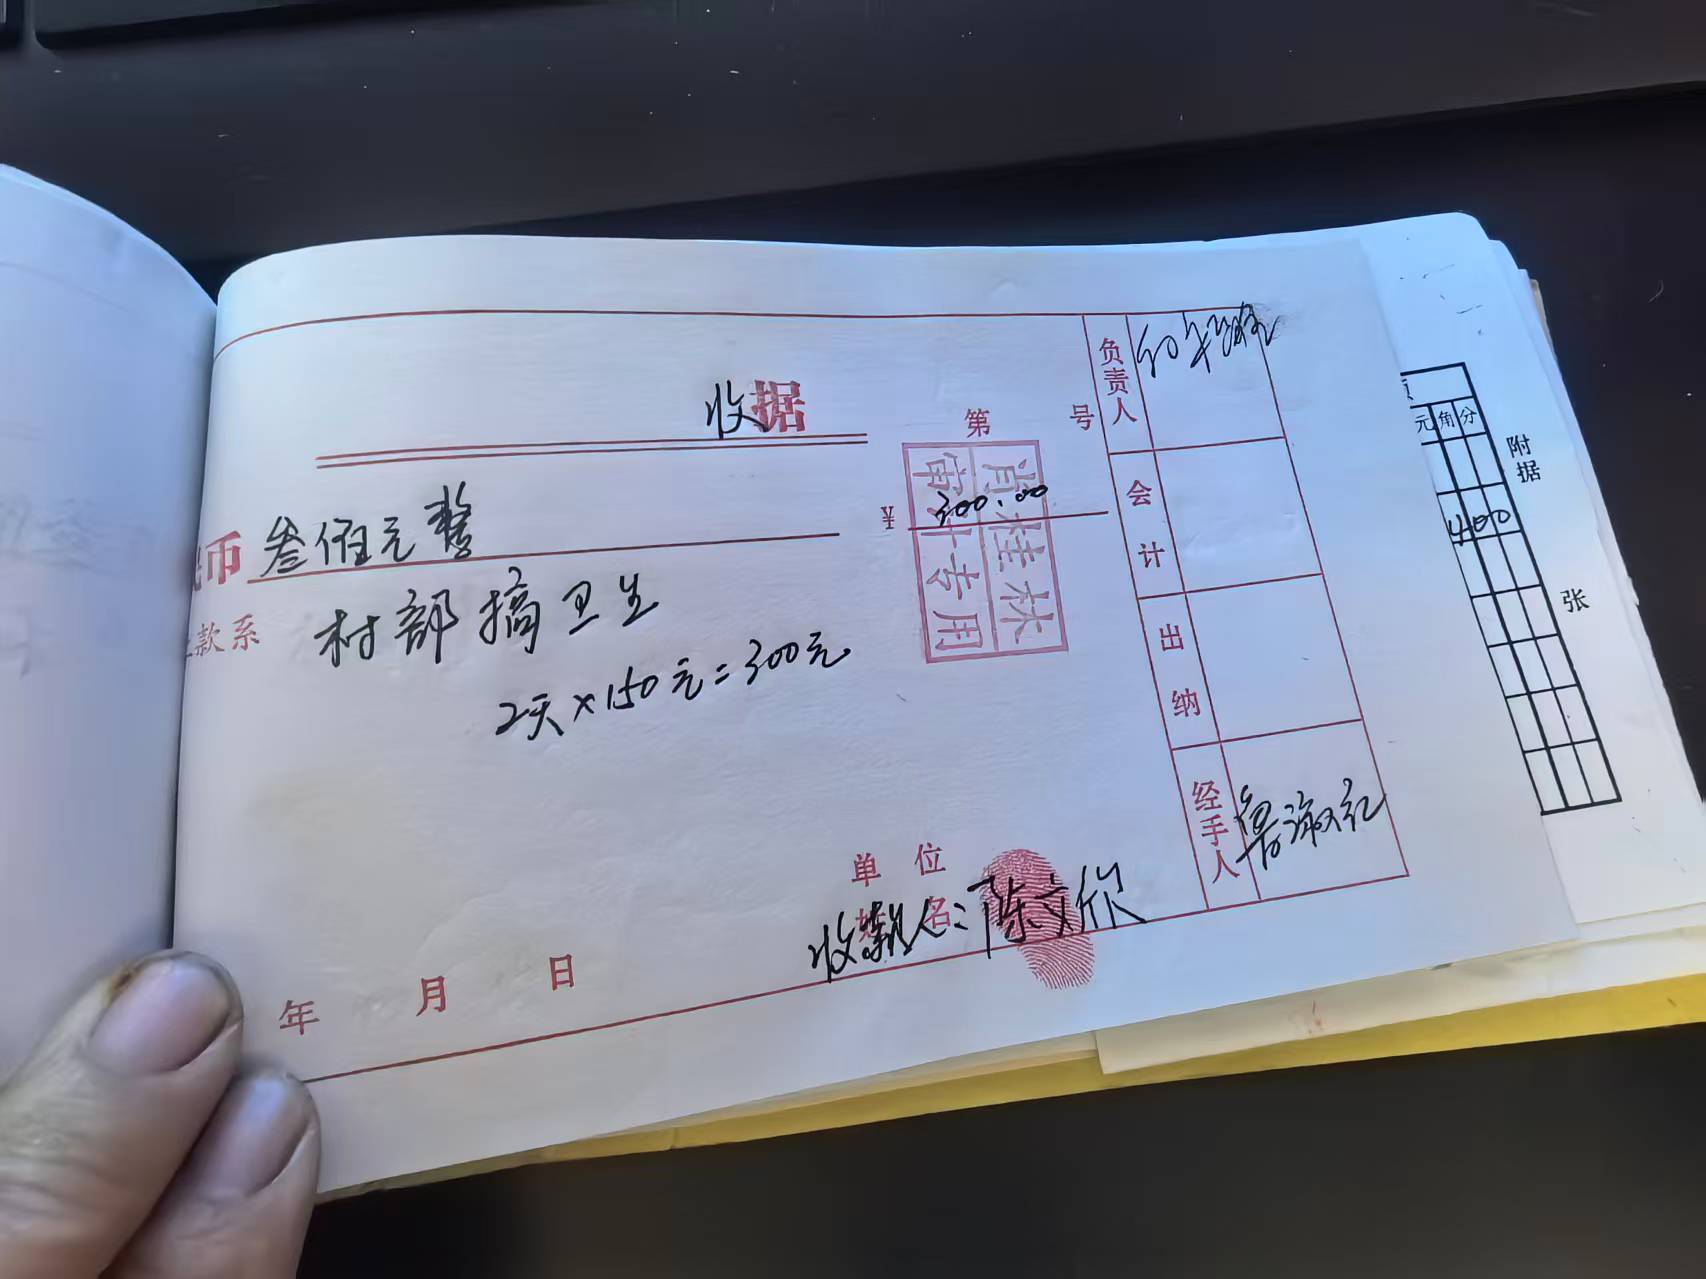 收据
第 号
币 叁佰元整
¥ 300.00
款系 村部搞卫生
2天×150元=300元
肖桂林
审计专用
负责人
会计
出纳
经手人 鲁淑红
单位
姓名
收款人:陈文欣
年 月 日
元角分
400
附
据
张